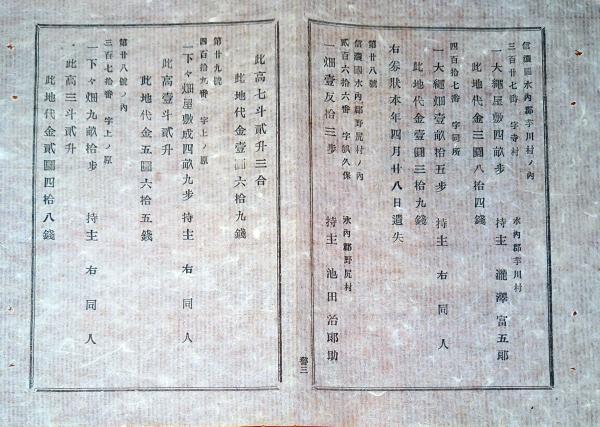 信濃國水內郡芋川村ノ內
三百廿七番 字寺村 水內郡芋川村
一大繩屋敷四畝步 持主 瀧澤富五郎
此地代金三圓八拾四錢
四百拾七番 字同所
一大繩畑壹畝拾五步 持主 右同人
此地代金壹圓三拾九錢
右劵狀本年四月廿八日遺失
第廿八號
信濃國水內郡野尻村ノ內
貳百六拾六番 字 久保 水內郡野尻村
一畑壹反拾三步 持主 池田治郎助
此高七斗貳升三合
此地代金壹圓六拾九錢
第廿九號
四百拾九番 字上ノ原
一下々畑屋敷成四畝九步 持主 右同人
此高壹斗貳升
此地代金五圓六拾五錢
第廿八號ノ內
三百七拾番 字上ノ原
一下々畑九畝拾步 持主 右同人
此高三斗貳升
此地代金貳圓四拾八錢
三